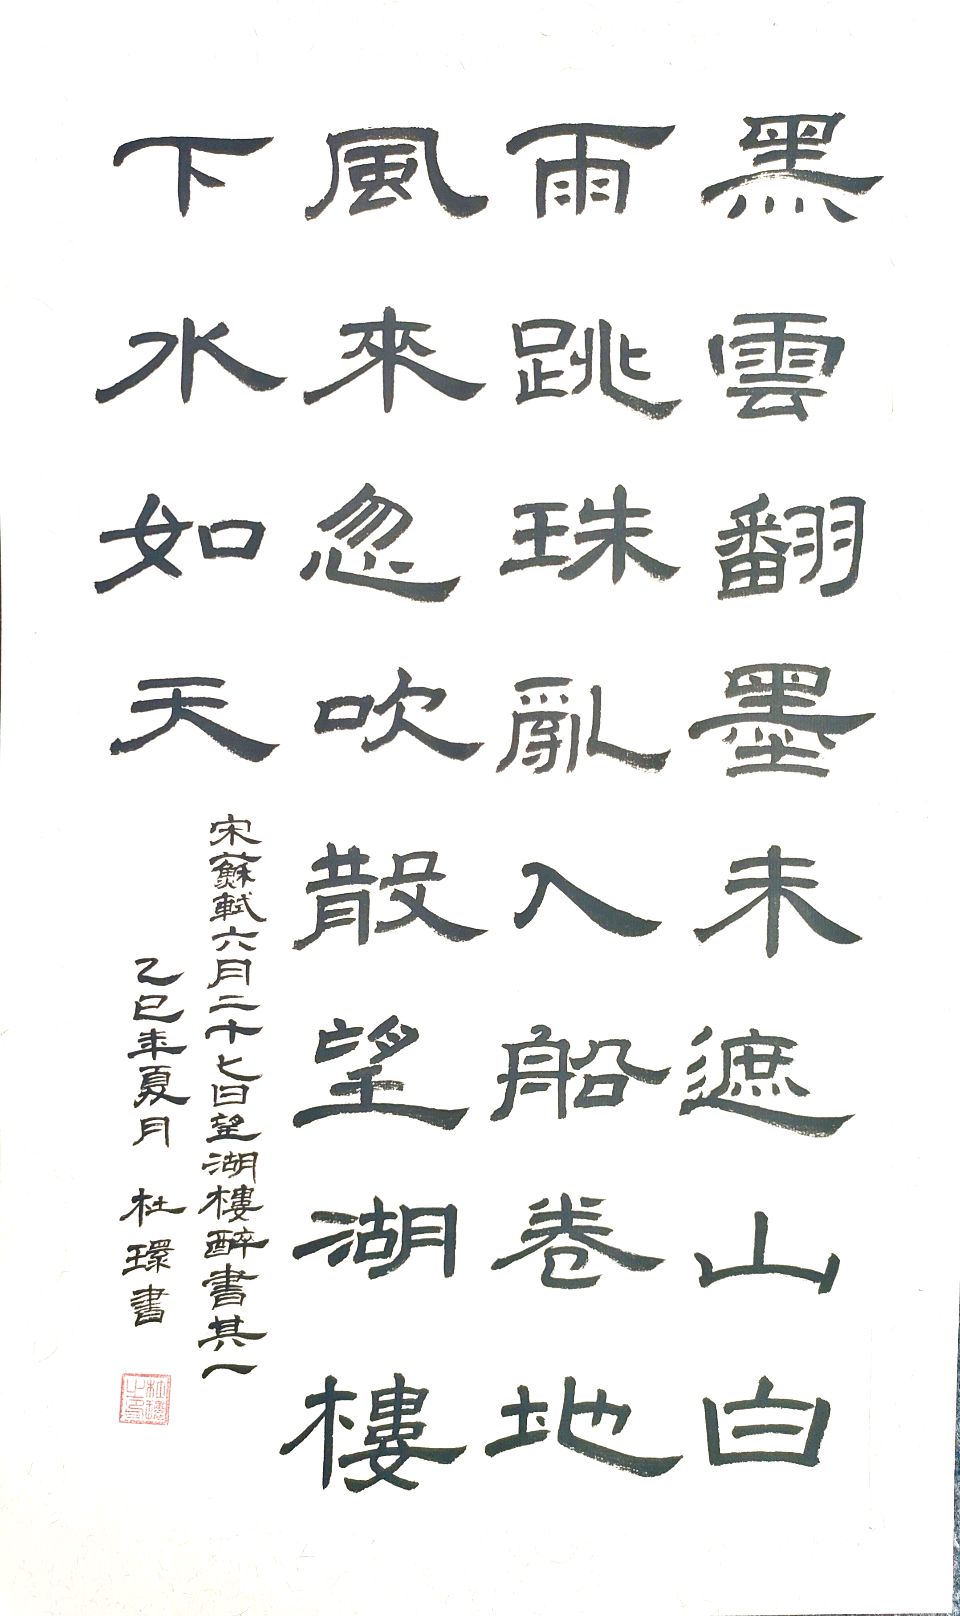 黑雲翻墨未遮山白
雨跳珠亂入船卷地
風來忽吹散望湖樓
下水如天
宋蘇軾六月二十七日望湖樓醉書其一
乙巳年夏月 杜環書
杜環之印